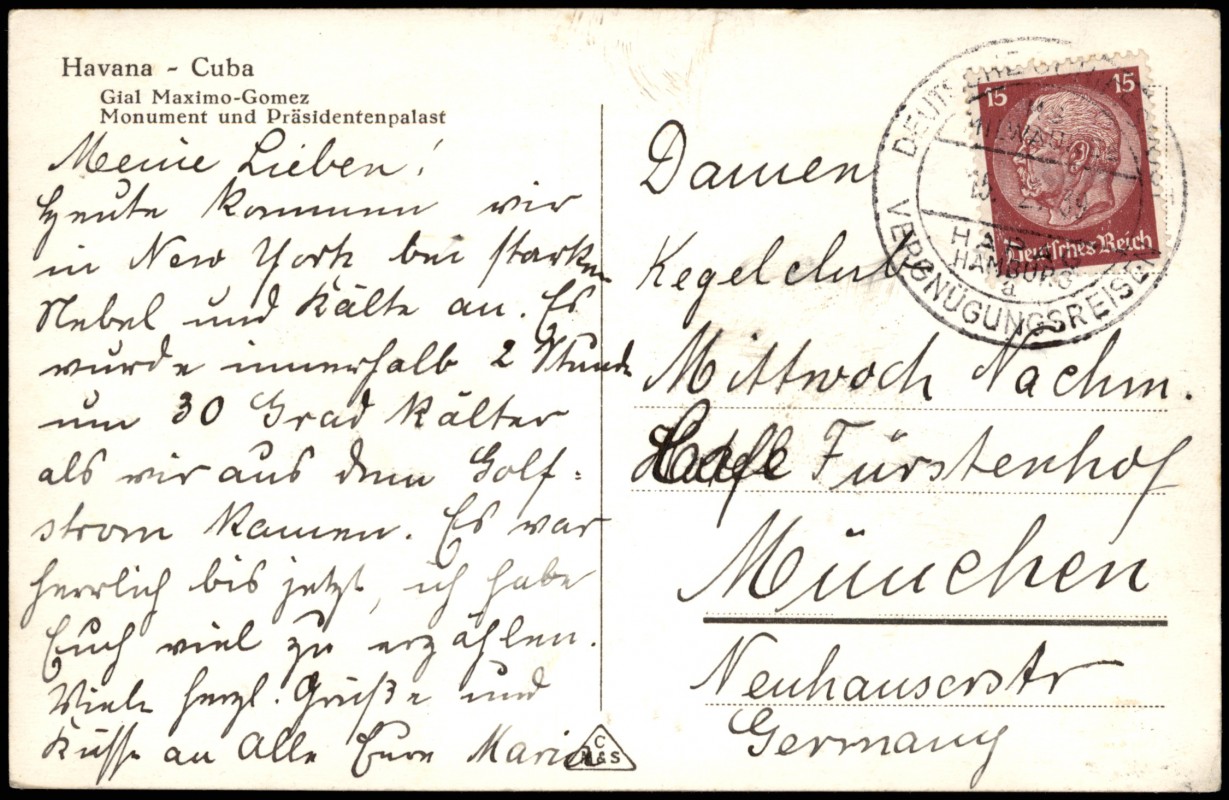 Havana - Cuba
Gial Maximo-Gomez
Monument und Präsidentenpalast
Meine Lieben!
Heute kommen wir
in New York bei starken
Nebel und Kälte an. Es
wurde innerhalb 2 Stunde
um 30 Grad Kälter
als wir aus dem Golf=
strom kamen. Es war
herrlich bis jetzt, ich habe
Euch viel zu erzählen.
Viele herzl. Grüße und
Küsse an Alle Eure Maria
C
H&S
Damen
Kegelclub
Mittwoch Nachm.
Cafe Fürstenhof
München
Neuhauserstr
Germany
15 15
Deutsches Reich
DEUTSCHE
VERGNÜGUNGSREISE
HAPAG
HAMBURG
a